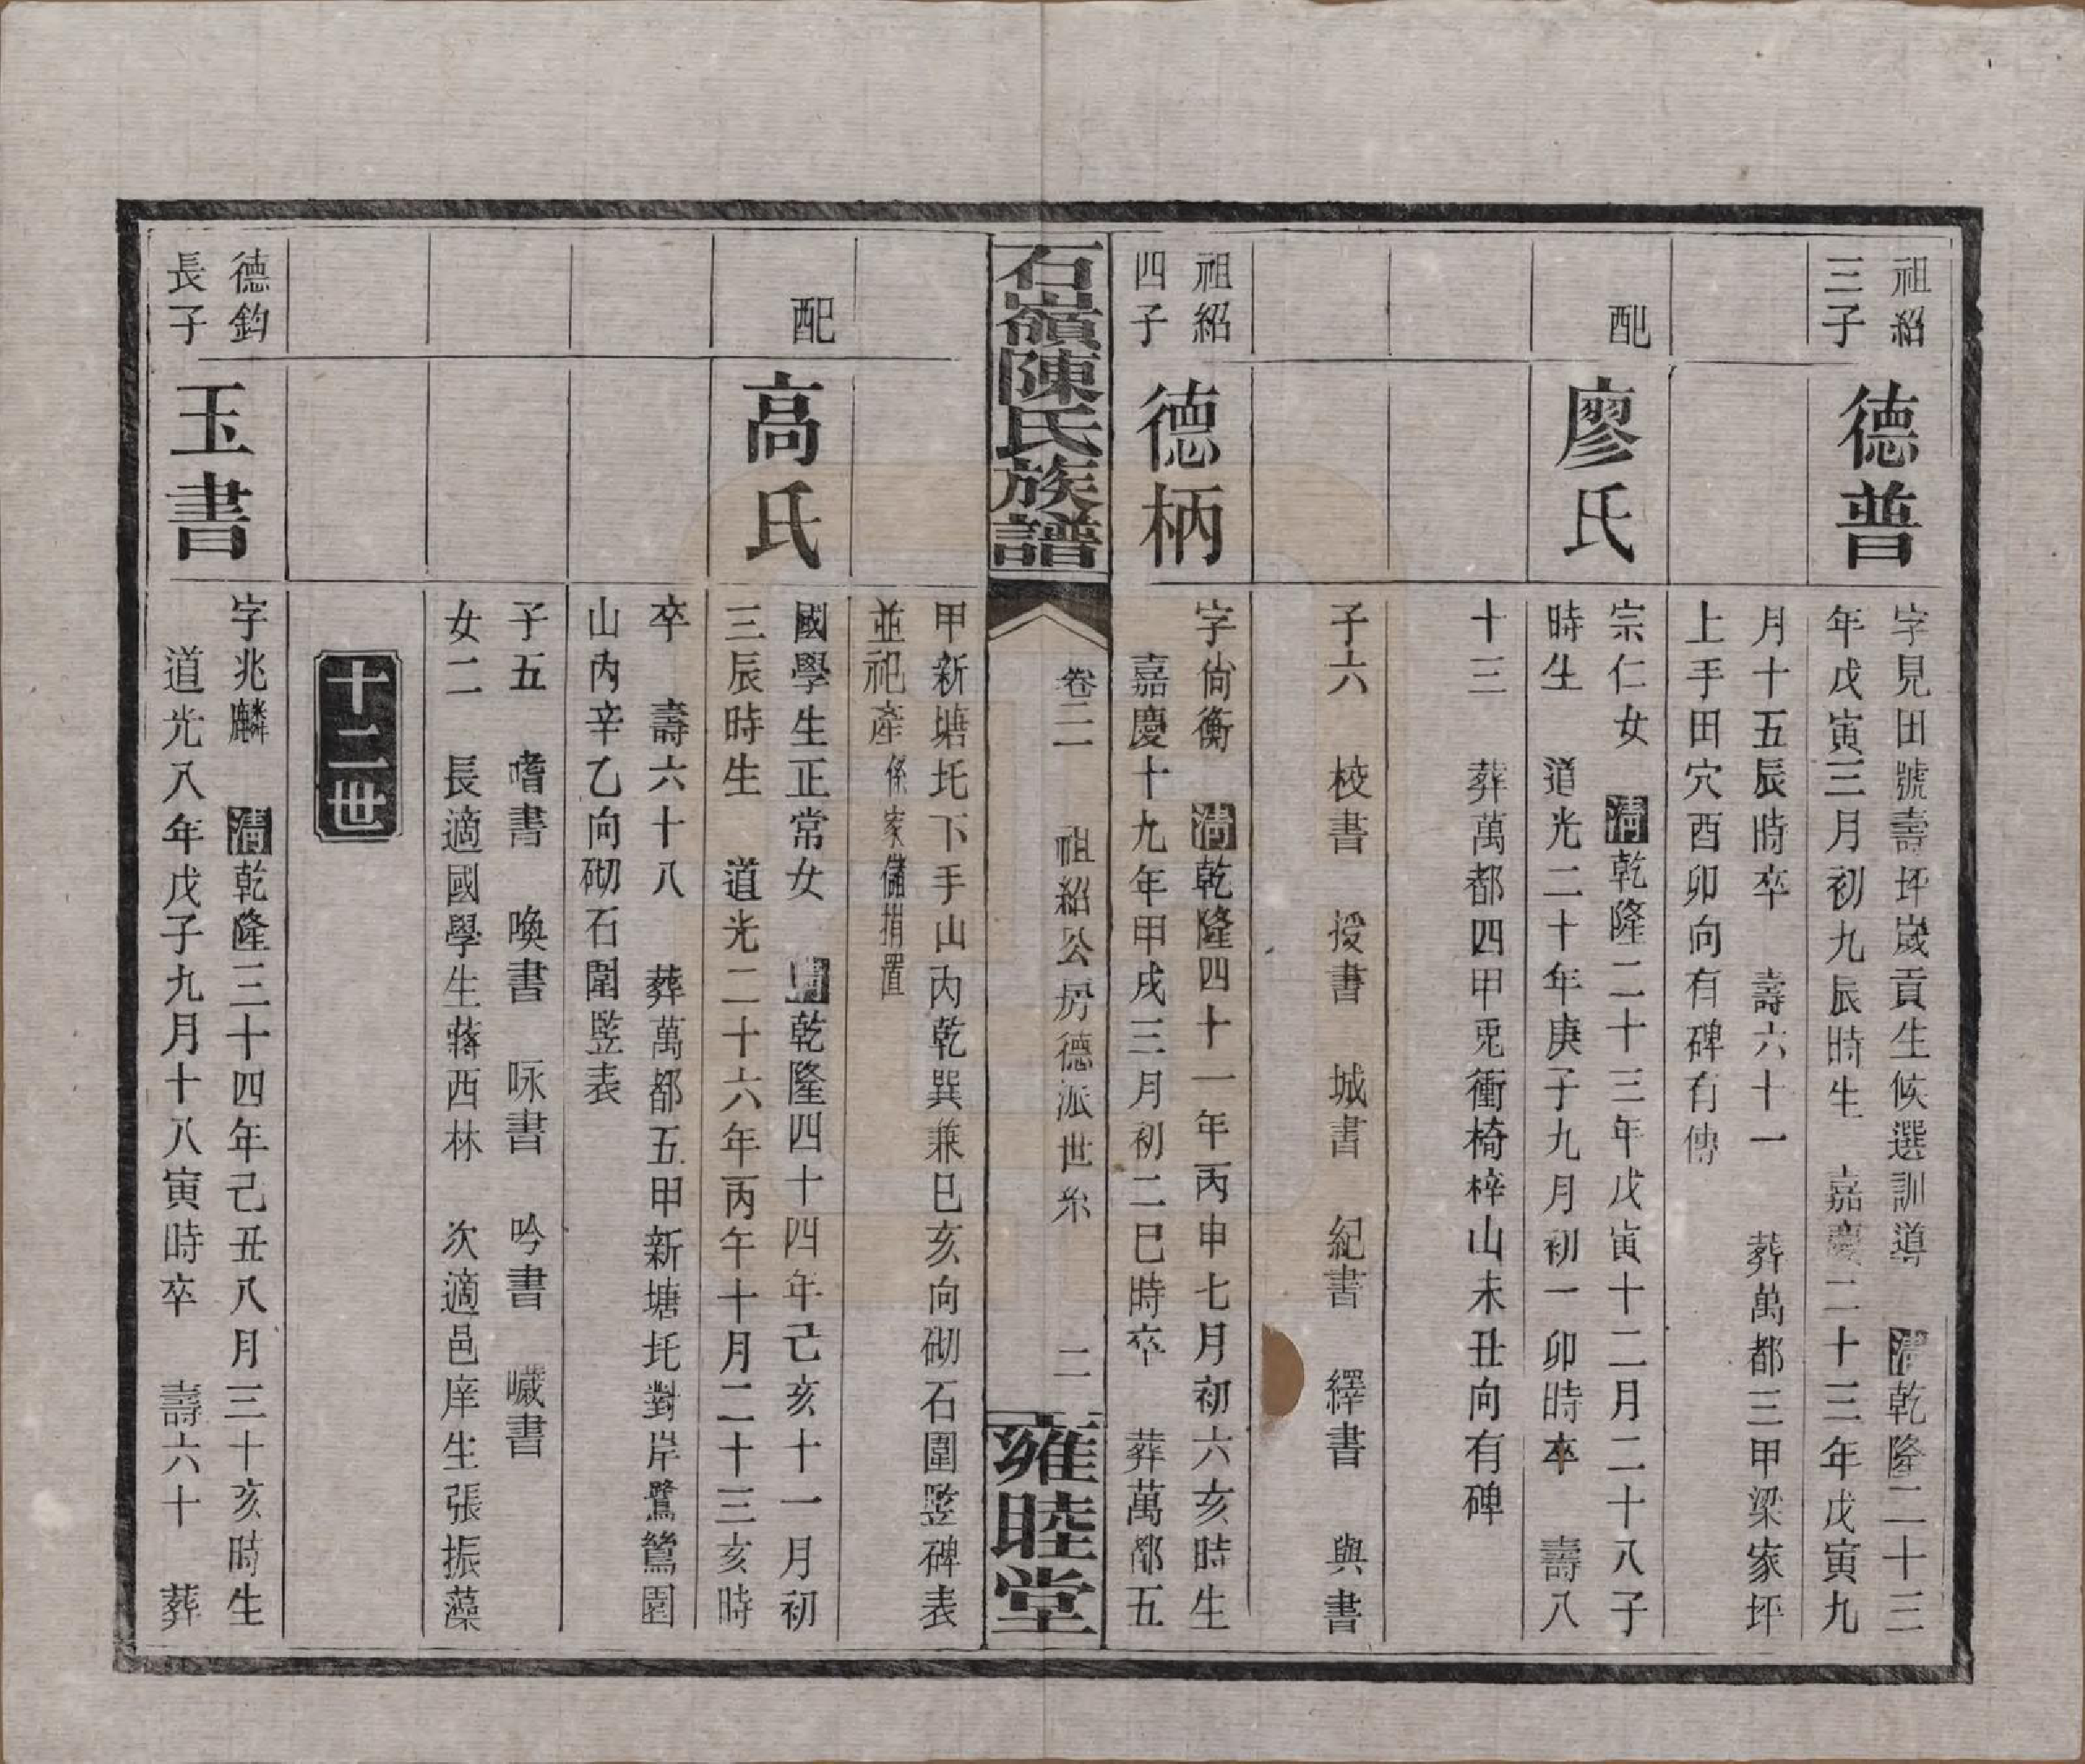 祖紹
三子
德普
字見田號壽坪歲貢生候選訓導 清乾隆二十三
年戊寅三月初九辰時生 嘉慶二十三年戊寅九
月十五辰時卒 壽六十一 葬萬都三甲梁家坪
上手田穴酉卯向有碑有傳
配
廖氏
宗仁女 清乾隆二十三年戊寅十二月二十八子
時生 道光二十年庚子九月初一卯時卒 壽八
十三 葬萬都四甲兎衝椅梓山未丑向有碑
子六 校書 授書 城書 紀書 繹書 與書
祖紹
四子
德柄
字尙衡 清乾隆四十一年丙申七月初六亥時生
嘉慶十九年甲戌三月初二巳時卒 葬萬都五
石嶺陳氏族譜
卷二 祖紹公房德派世系 二
雍睦堂
甲新塘圫下手山內乾巽兼巳亥向砌石圍竪碑表
並祀產係家儲捐置
配
高氏
國學生正常女 清乾隆四十四年己亥十一月初
三辰時生 道光二十六年丙午十月二十三亥時
卒 壽六十八 葬萬都五甲新塘圫對岸鷺鷥園
山內辛乙向砌石圍竪表
子五 嗜書 喚書 咏書 吟書 嚱書
女二 長適國學生蔣西林 次適邑庠生張振藻
十二世
德鈞
長子
玉書
字兆麟 清乾隆三十四年己丑八月三十亥時生
道光八年戊子九月十八寅時卒 壽六十 葬